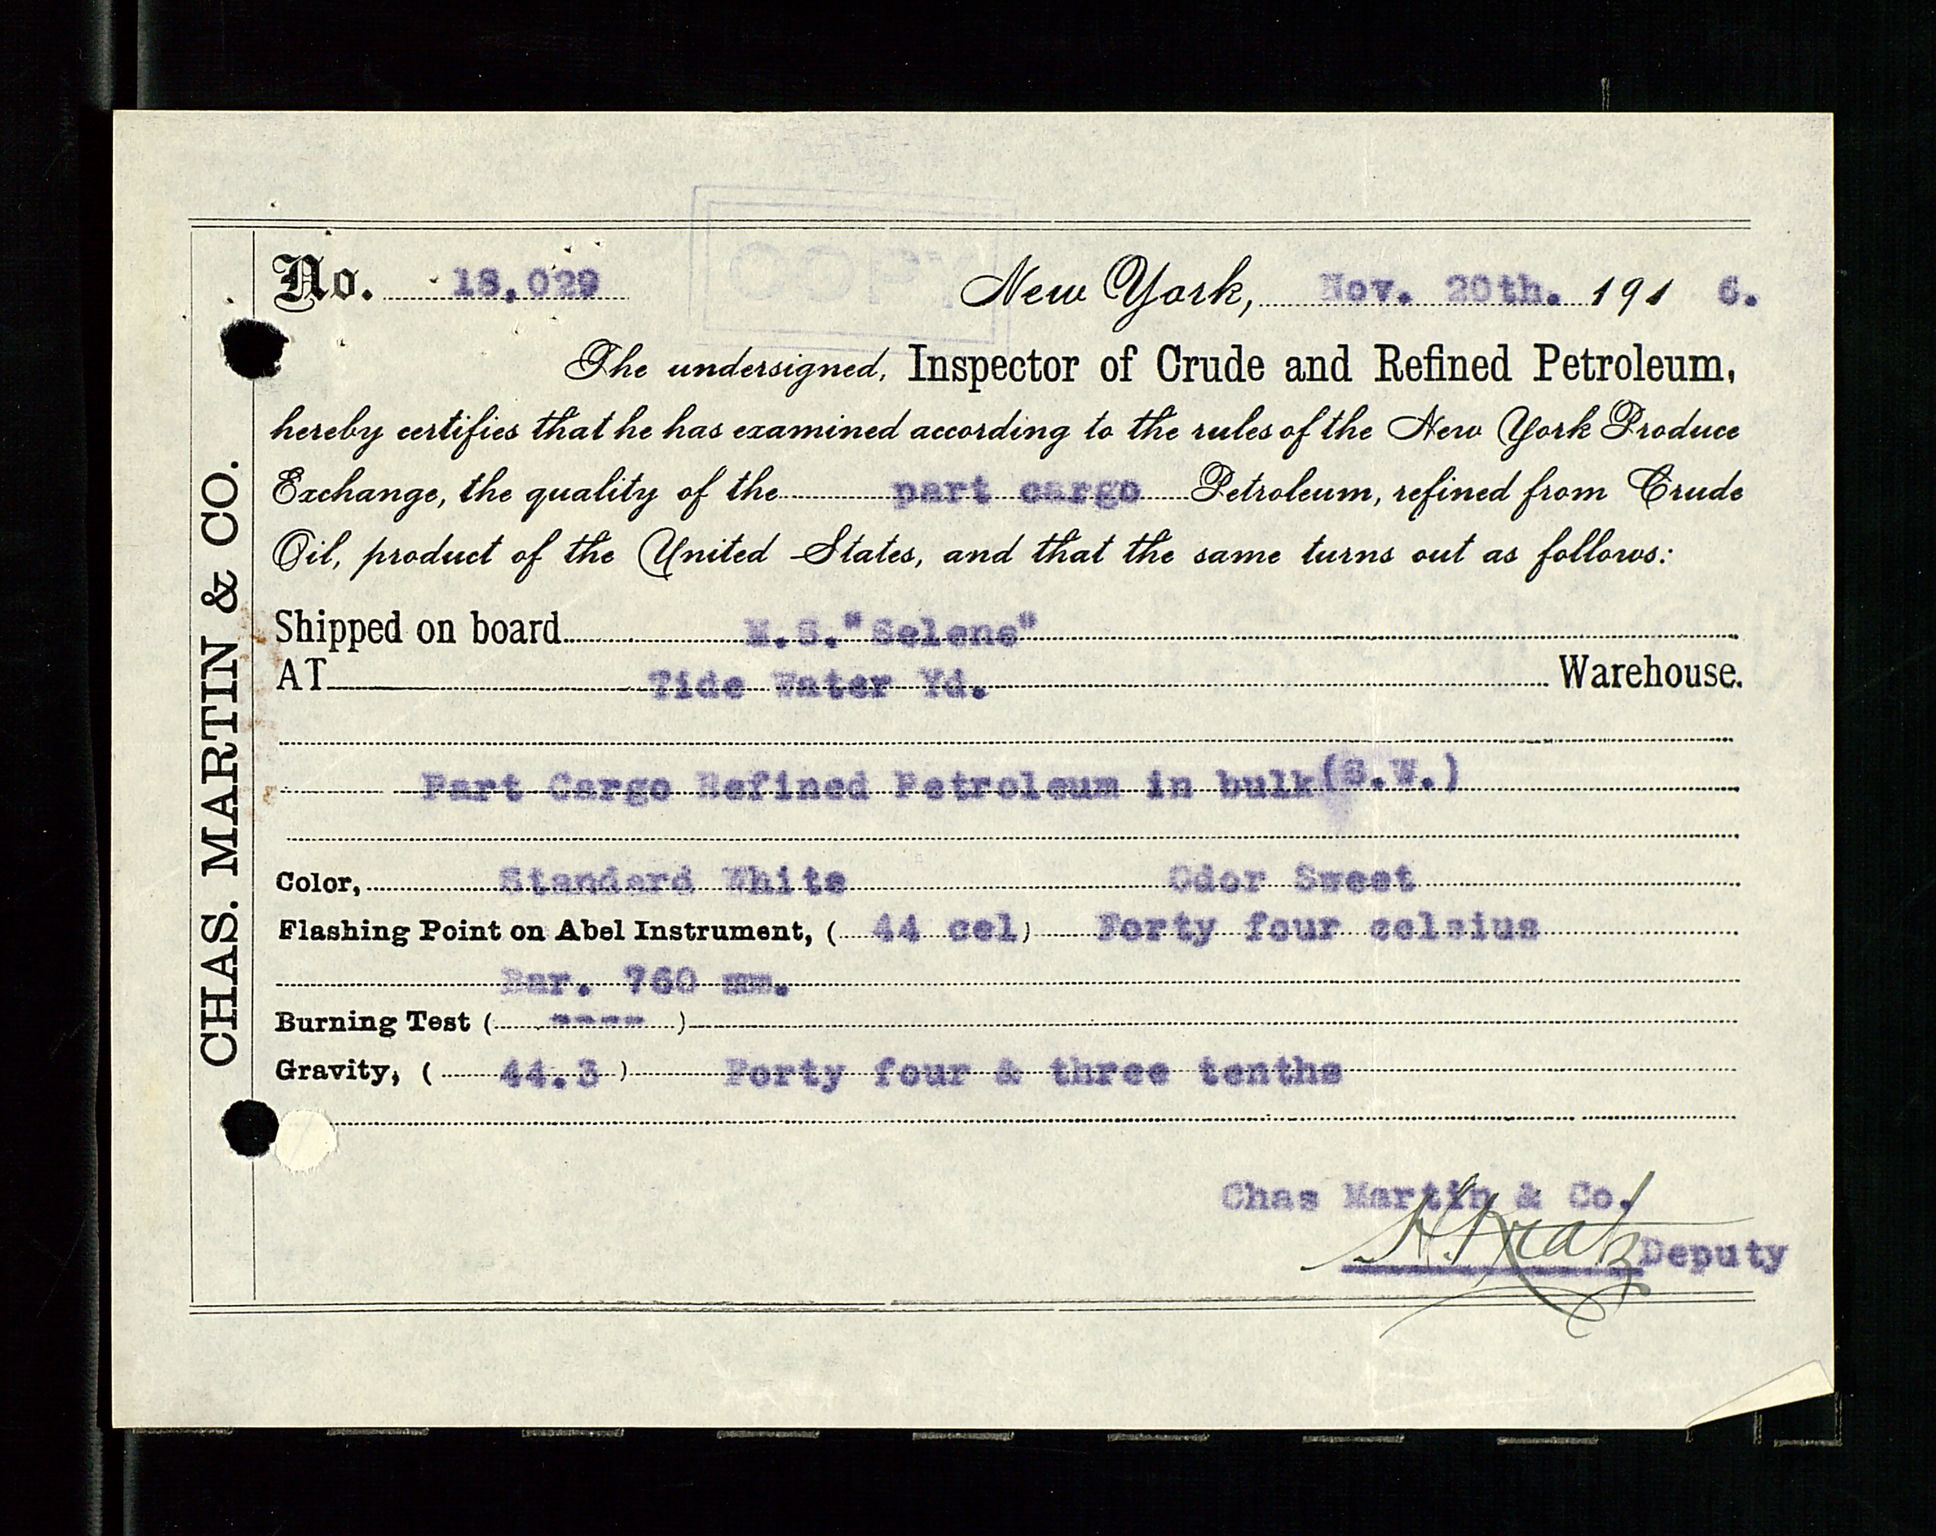 CHAS. MARTIN & CO.
No. 18,029 New York, Nov. 20th. 191 6.
The undersigned, Inspector of Crude and Refined Petroleum,
hereby certifies that he has examined according to the rules of the New York Produce
Exchange, the quality of the part cargo Petroleum, refined from Crude
Oil, product of the United States, and that the same turns out as follows:
Shipped on board M.S."Selene"
AT Tide Water Yd. Warehouse.
Part Cargo Refined Petroleum in bulk(S.W.)
Color, Standard White Odor Sweet
Flashing Point on Abel Instrument, ( 44 cel) Forty four celsius
Bar. 760 mm.
Burning Test ( ---- )
Gravity, ( 44.3 ) Forty four & three tenths
Chas Martin & Co.
H. Kratz Deputy